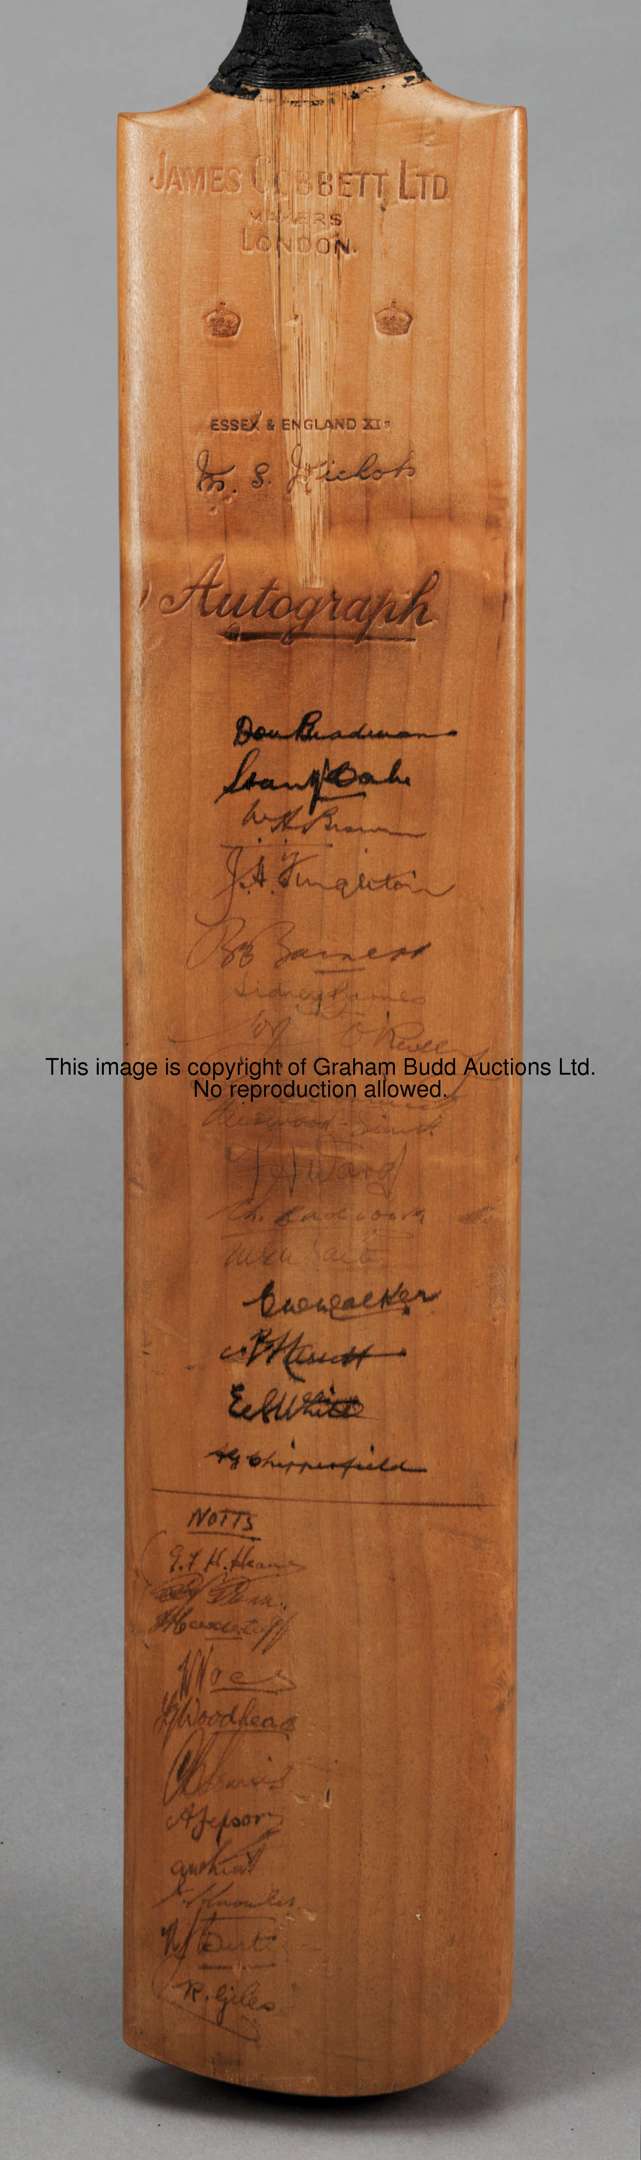 JAMES COBBETT LTD
MAKERS
LONDON.
ESSEX & ENGLAND XI
M. S. Nichols
Autograph
Don Bradman
Stan McCabe
W A Brown
J. H. Fingleton
B A Barnett
Sidney Barnes
O'Reilly
This image is copyright of Graham Budd Auctions Ltd.
No reproduction allowed.
Fleetwood-Smith
F A Ward
M. G. Waite
C W Walker
E S White
A G Chipperfield
NOTTS
G. F. H. Heane
J Hardstaff
W Voce
F G Woodhead
C B Harris
A Jepson
J Knowles
H J Butler
R. Giles